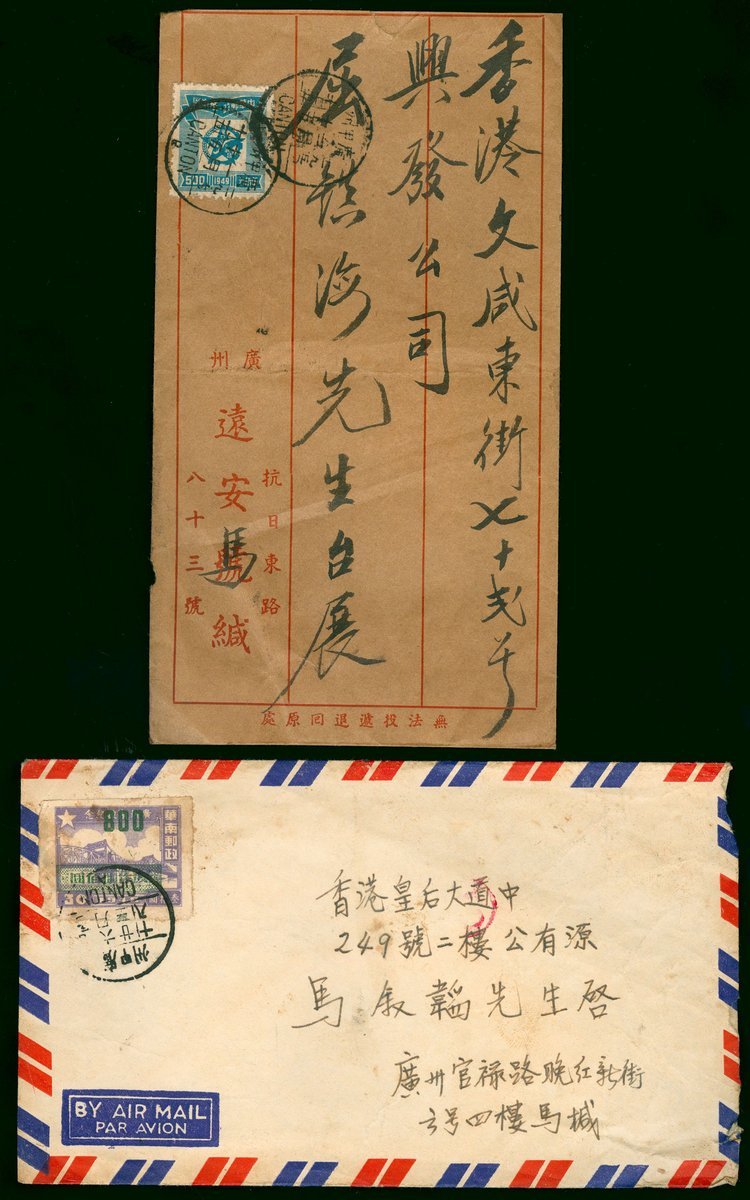 香港文咸東街七十弍号
興發公司
屈鎮海先生台展
廣州
抗日東路
遠安號緘
馬
八十三號
無法投遞退回原處
500
1949
CANTON
CANTON
800
華南郵政
CANTON
香港皇后大道中
249號二樓公有源
馬叙韜先生啓
廣州官禄路晚红新街
号四樓馬椷
BY AIR MAIL
PAR AVION